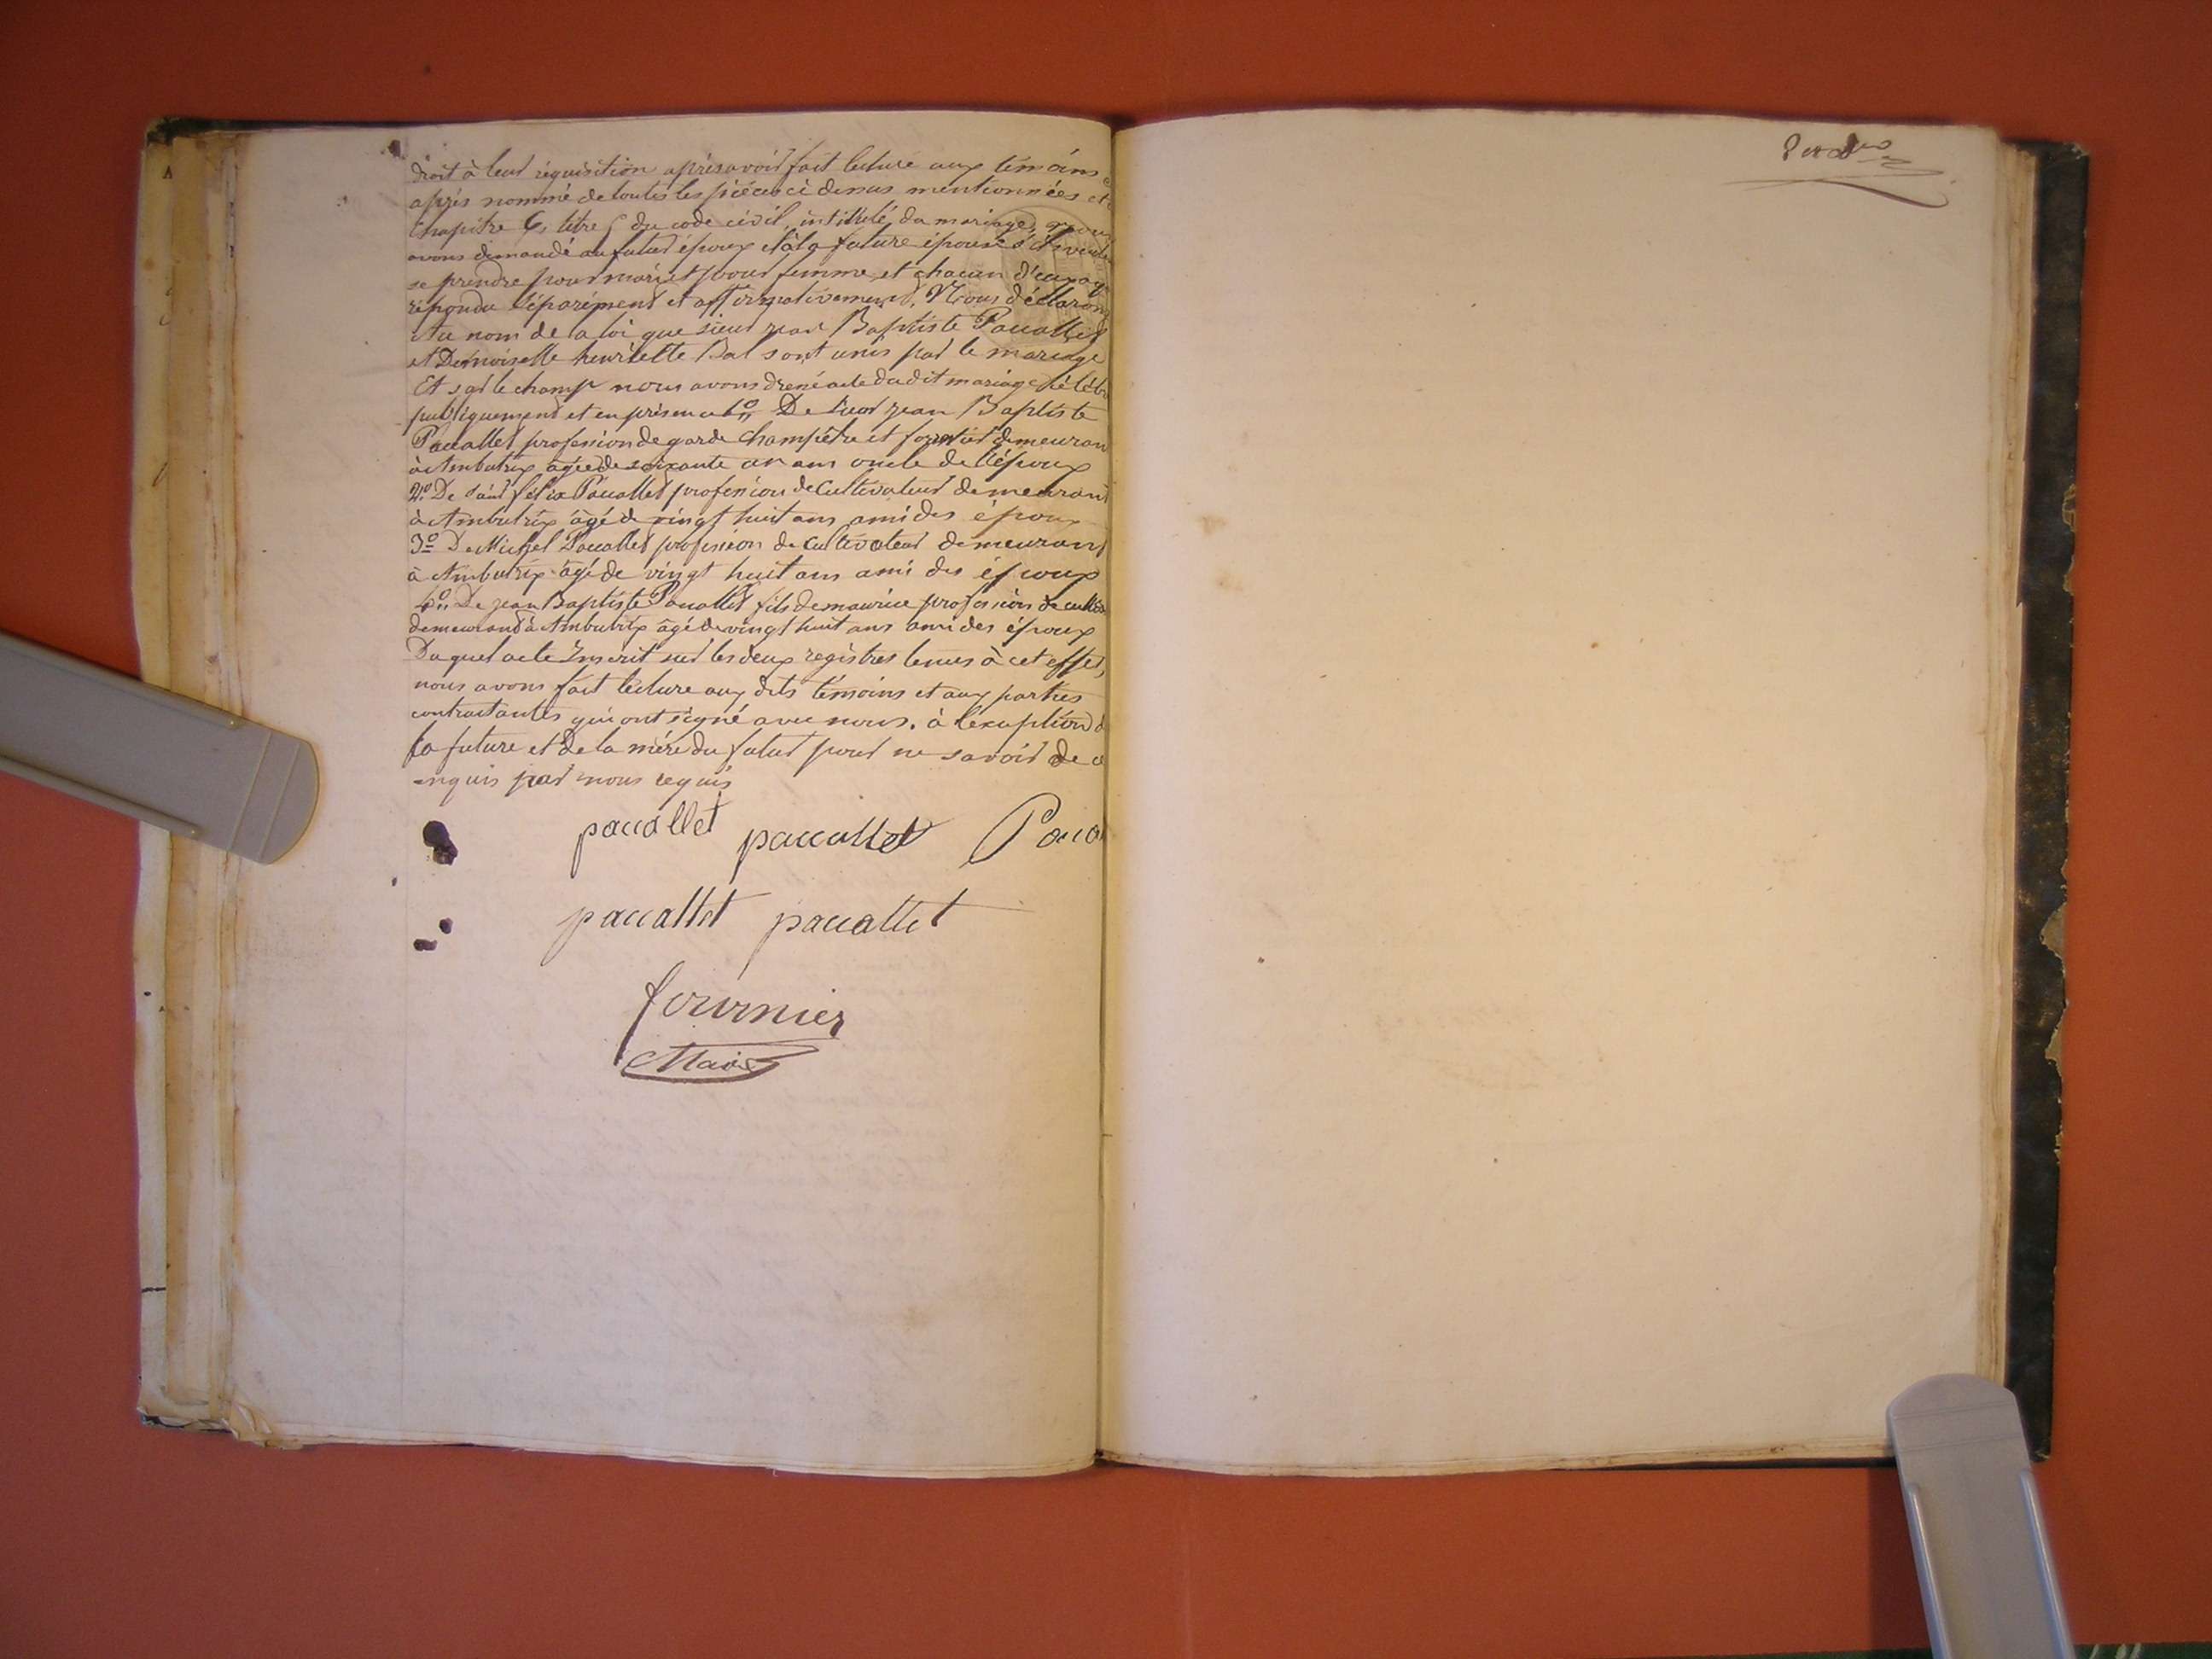 droit à leur réquisition après avoir fait lecture aux témoins
après nommé de toutes les pièces ci dessus mentionnées et
Chapitre 6, titre 5 du code civil, intitulé du mariage,
avons demandé au futur époux et à la future épouse s'ils veule
se prendre pour mari et pour femme et chacun d'eux
répondu séparément et affirmativement, Nous déclarons
Au nom de la loi que sieur jean Baptiste Paccallet
et Demoiselle henriette Bal sont unis par le mariage
Et sur le champ nous avons dressé acte dudit mariage célébr
publiquement et en présence 1º De sieur jean Baptiste
Paccallet profession de garde Champêtre et forestier demeuran
à Ambutrix âgé de soixante un ans oncle de l'époux
2º De félix Paccallet profession de Cultivateur demeurant
à Ambutrix âgé de vingt huit ans ami des époux
3º De Michel Paccallet profession de Cultivateur demeurant
à Ambutrix âgé de vingt huit ans ami des époux
4º De jean Baptiste Paccallet fils de maurice profession de cultiv
demeurant à Ambutrix âgé de vingt huit ans ami des époux
Duquel acte Inscrit sur les deux registres tenus à cet effet,
nous avons fait lecture aux dits témoins et aux parties
contractantes qui ont signé avec nous. à l'exception d
la future et de la mère du futur pour ne savoir de ce
enquis par nous requis
paccallet paccallet Pacca
paccallet paccallet
fournier
Maire